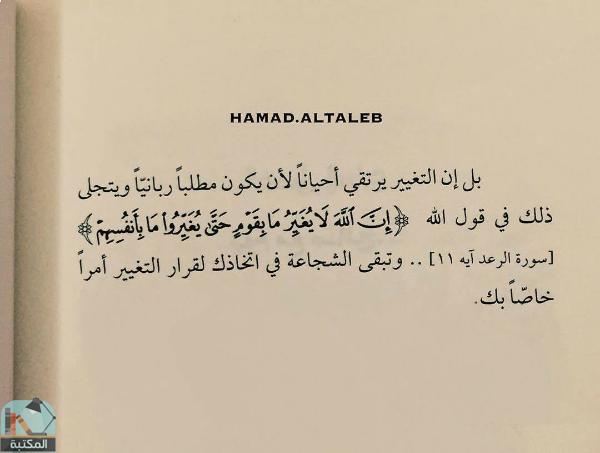 HAMAD.ALTALEB
بل إن التغيير يرتقي أحياناً لأن يكون مطلباً ربانيّاً ويتجلى
ذلك في قول الله ﴿إِنَّ ٱللَّهَ لَا يُغَيِّرُ مَا بِقَوْمٍ حَتَّىٰ يُغَيِّرُوا۟ مَا بِأَنفُسِهِمْ﴾
[سورة الرعد آيه ١١] .. وتبقى الشجاعة في اتخاذك لقرار التغيير أمراً
خاصّاً بك.
المكتبة